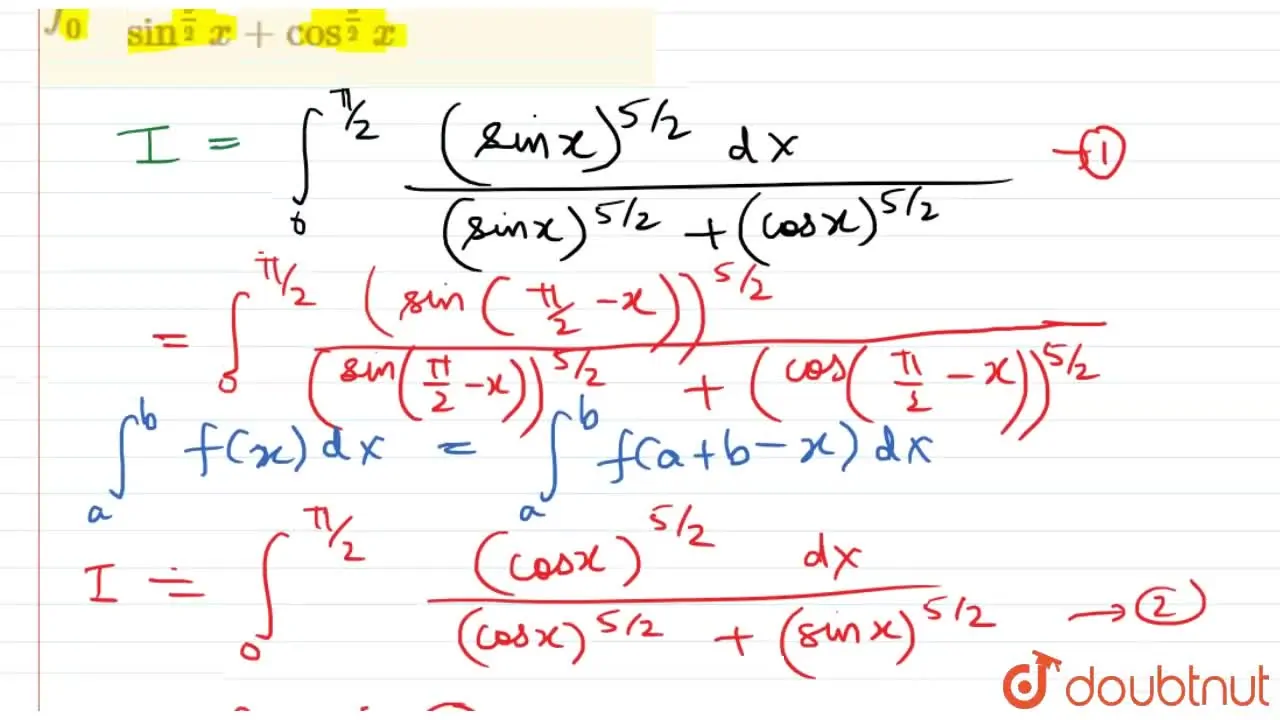 ∫₀ sin^(5/2) x + cos^(5/2) x
I = ∫₀^(π/2) (sinx)^(5/2) dx / ((sinx)^(5/2) + (cosx)^(5/2)) → ①
= ∫₀^(π/2) (sin(π/2 − x))^(5/2) / ((sin(π/2 − x))^(5/2) + (cos(π/2 − x))^(5/2))
∫ₐᵇ f(x) dx = ∫ₐᵇ f(a+b−x) dx
I = ∫₀^(π/2) (cosx)^(5/2) dx / ((cosx)^(5/2) + (sinx)^(5/2)) → ②
doubtnut